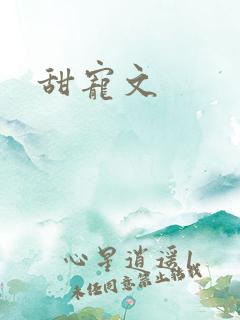 甜寵文
心星逍遥|
未经同意禁止转载